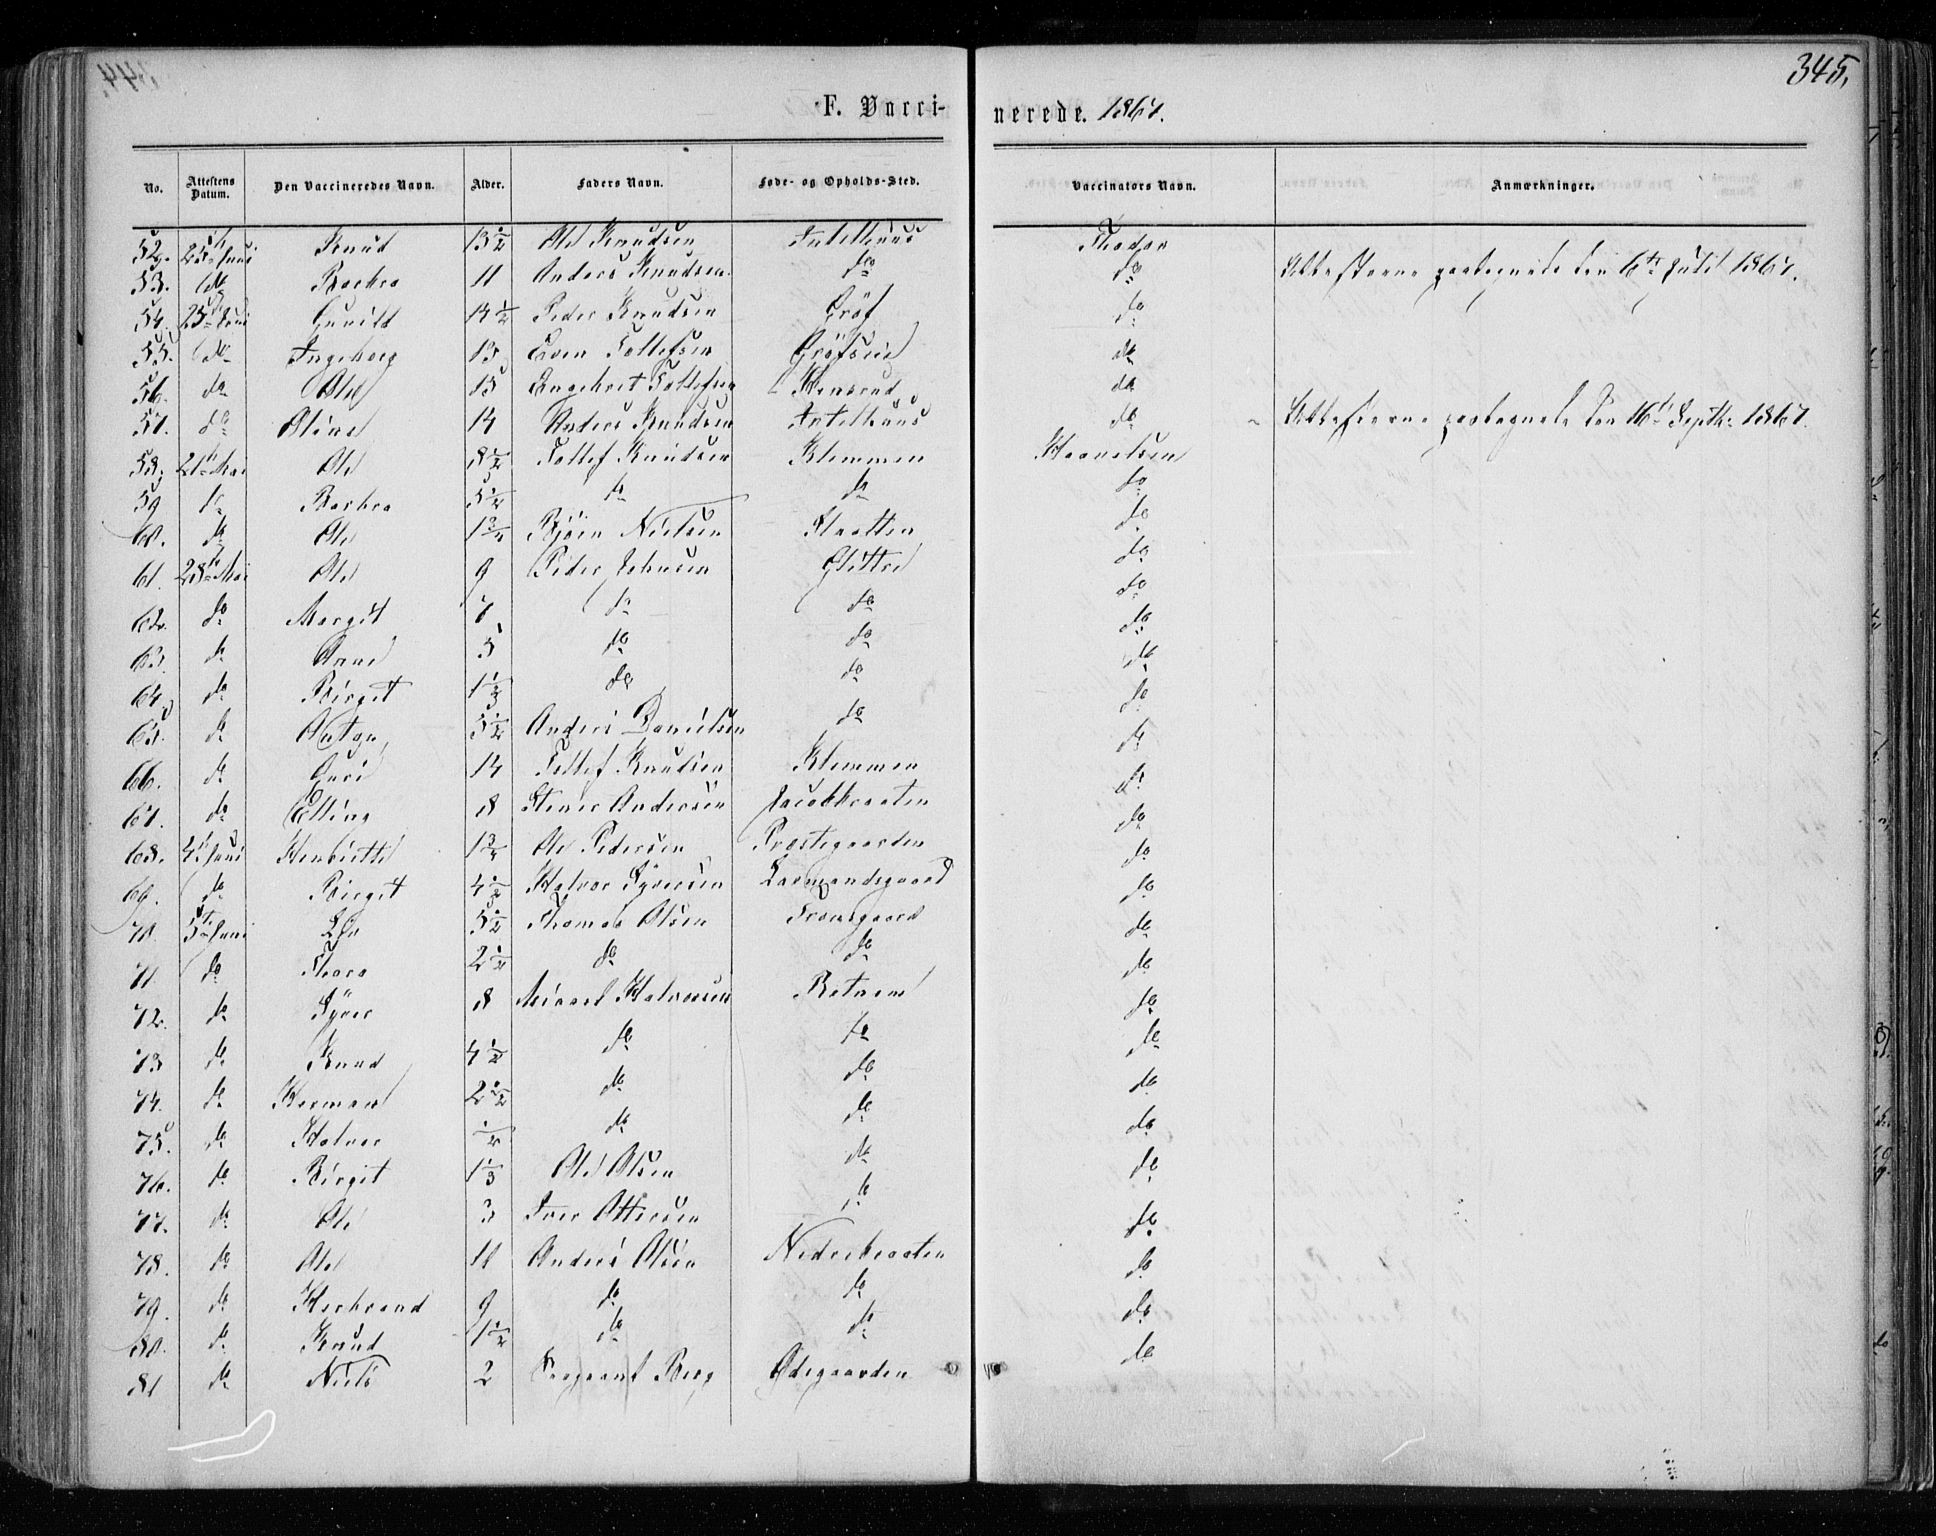 345,
F. Vaccinerede. 1867.
No. Attestens Datum. Den Vaccineredes Navn. Alder. Faders Navn. Føde- og Opholds-Sted. Vaccinators Navn. Anmærkninger.
52. 25 Juni Knud 13 1/2 Ole Knudsen
53. do Barbro 11 Anders Knudsen do do den 6te Juli 1867.
54. 25 Juni Gunild 14 1/2 Peder Knudsen Gröf do
55. do Ingeborg 13 Even Tollefsen do
56. do Ole 15 Engebret Tollefsen do
57. do Oline 14 Anders Knudsen do den 16de Septbr 1867.
58. 21 Mai Ole 8 1/2 Tollef Knudsen Klemmen
59 do Barbro 5 1/2 do do do
60. do Ole 1 3/4 Björn Nielsen do
61. 28 Mai Ole 9 Peder Johnsen Glittre do
62. do Margit 7 do do do
63. do Anne 5 do do do
64. do Birgit do do do
65. do 5 1/2 Anders Danielsen do do
66. do Guri 14 Tollef Knudsen Klemmen do
67. do Elling 8 Stener Andersen Jacobbraaten do
68. 4 Juni Henriette 1 3/4 Ole Pedersen Præstegaarden do
69. do Birgit 4 1/2 Halvor Syversen do
70. 5te Juni Liv 5 1/2 Thomas Olsen do
71. do Thora 2 1/2 do do do
72. do Syver 8 Halvorsen do
73 do Knud 4 1/2 do do do
74. do Herman 2 1/2 do do do
75. do Halvor 1/2 do do do
76. do Birgit 1 1/3 Ole Olsen do do
77. do Ole 3 Iver Ottersen do do
78. do Ole 11 Anders Olsen Nederbraaten do
79. do Herbrand 9 do do do
80. do Knud 1 1/2 do do do
81 do Niels 2 Sergeant Berg Ødegaarden